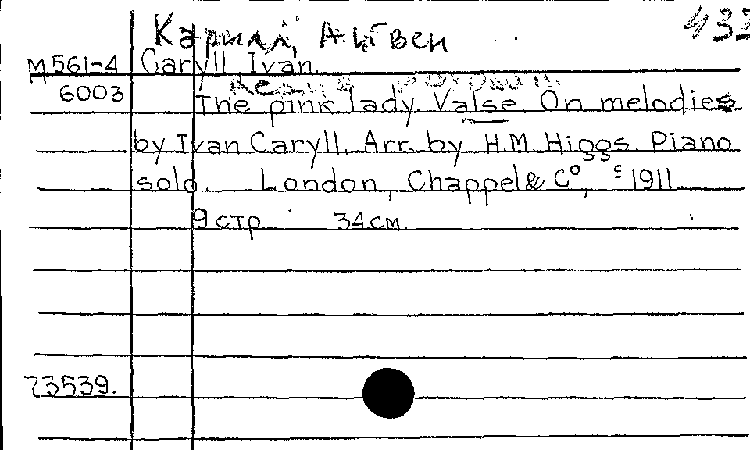 Карилл, Айвен
M561-4 Caryll Ivan.
6003 The pink lady. Valse On melodies
by Ivan Caryll. Arr. by H.M. Higgs. Piano
solo. London, Chappel & Cº, c 1911
9 стр. 34 см.
73539.